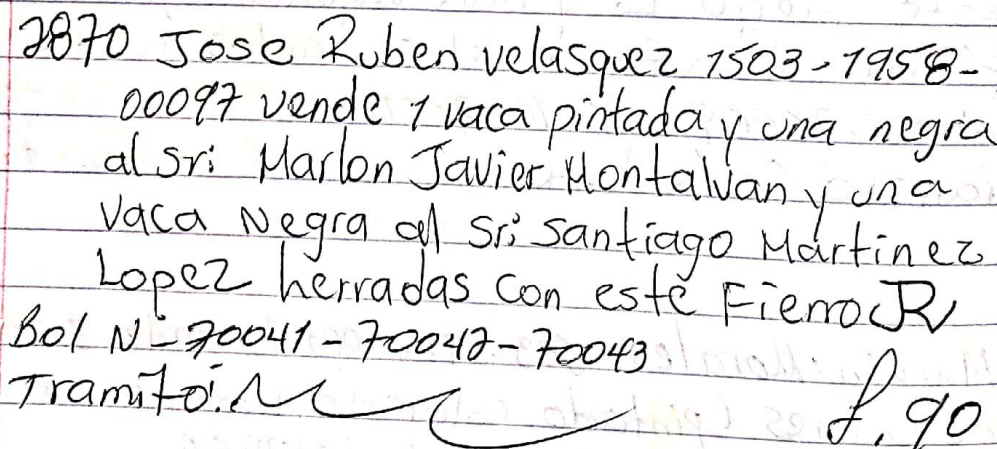 2870 Jose Ruben velasquez 1503-1958-
00097 vende 1 vaca pintada y una negra
al Sr: Marlon Javier Montalvan y una
vaca Negra al Sr: Santiago Martinez
Lopez herradas con este Fierro JR
Bol N-70041-70042-70043
Tramito:
f. 90